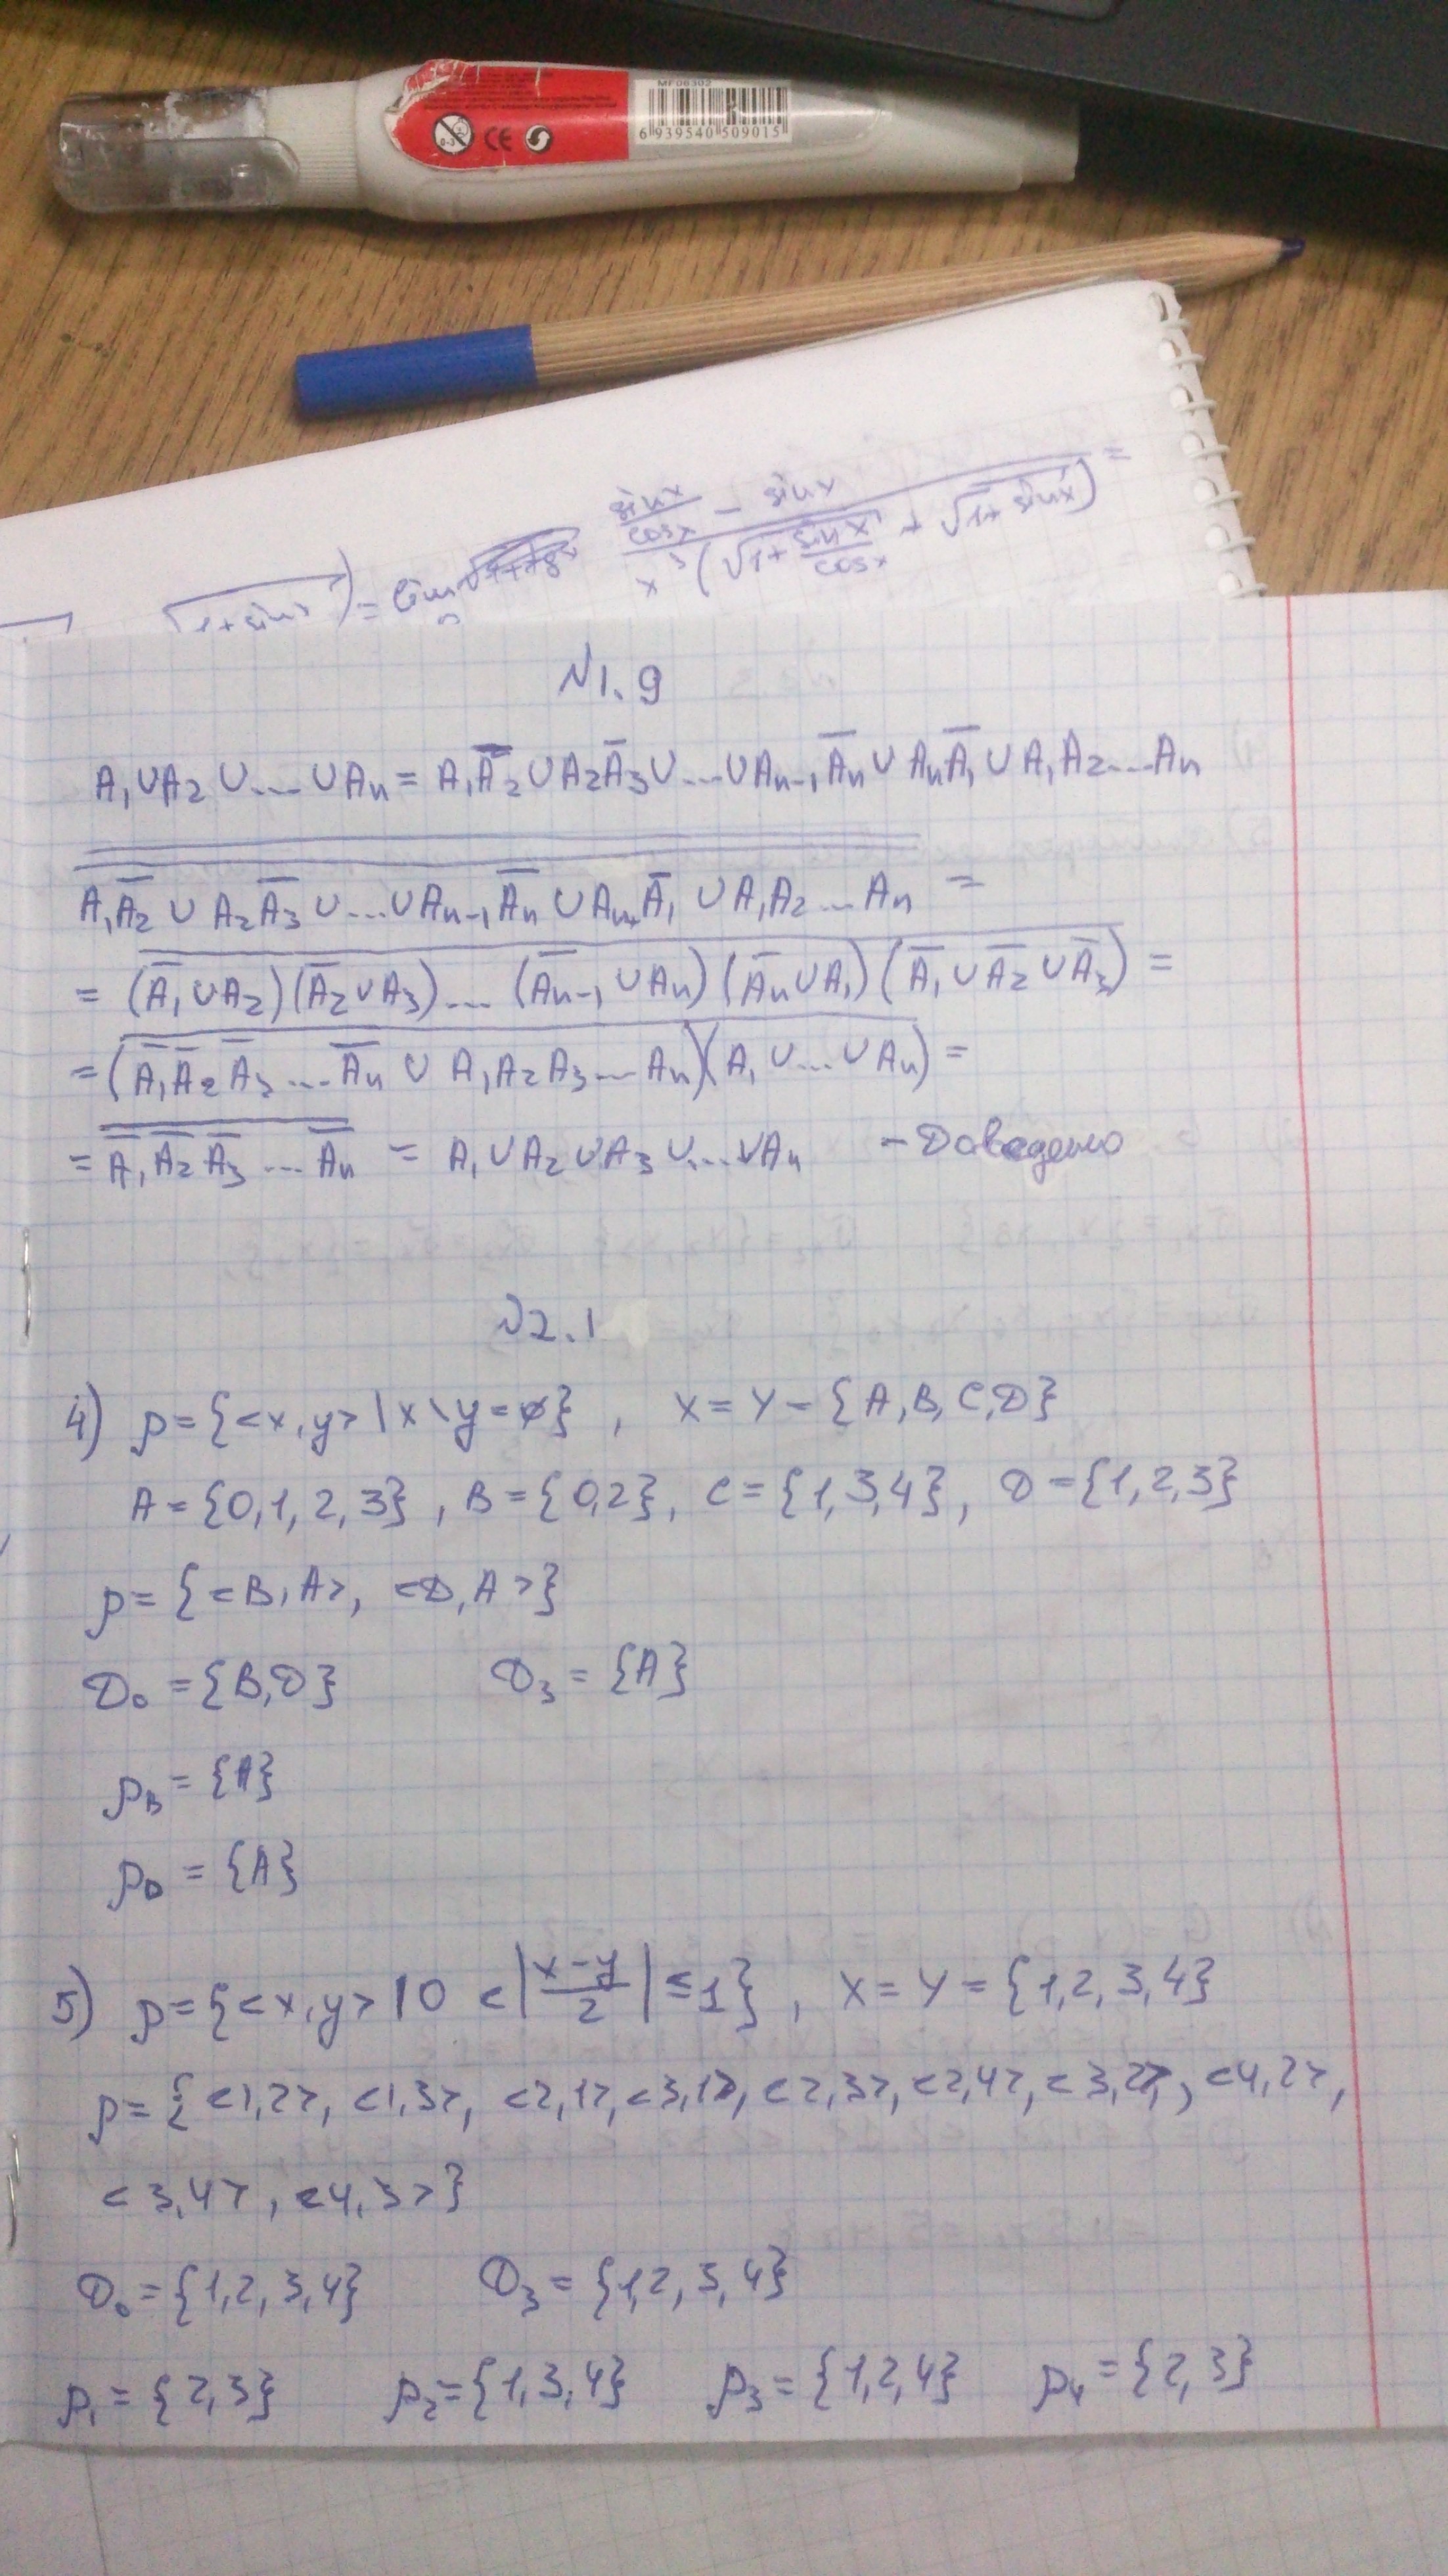 MF06302
0-3 CE
6 939540 509015
√(1+sinx)) = lim (sinx/cosx − sinx)/(x³(√(1+sinx/cosx) + √(1+sinx))) =
N1.9
A₁∪A₂∪...∪Aₙ = A₁A̅₂∪A₂A̅₃∪...∪Aₙ₋₁A̅ₙ∪AₙA̅₁∪A₁A₂...Aₙ
A₁A̅₂∪A₂A̅₃∪...∪Aₙ₋₁A̅ₙ∪AₙA̅₁∪A₁A₂...Aₙ =
= (A̅₁∪A₂)(A̅₂∪A₃)...(A̅ₙ₋₁∪Aₙ)(A̅ₙ∪A₁)(A̅₁∪A̅₂∪A̅₃) =
= (A̅₁A̅₂A̅₃...A̅ₙ ∪ A₁A₂A₃...Aₙ)(A₁∪...∪Aₙ) =
= A̅₁A̅₂A̅₃...A̅ₙ = A₁∪A₂∪A₃∪...∪Aₙ – Доведено
N2.1
4) ρ={<x,y>|x\y=∅}, X=Y={A,B,C,D}
A={0,1,2,3}, B={0,2}, C={1,3,4}, D={1,2,3}
ρ={<B,A>, <D,A>}
D₀={B,D} D₃={A}
ρ_B={A}
ρ_D={A}
5) ρ={<x,y>|0<|(x−y)/2|≤1}, X=Y={1,2,3,4}
ρ={<1,2>, <1,3>, <2,1>, <3,1>, <2,3>, <2,4>, <3,2>, <4,2>,
<3,4>, <4,3>}
D₀={1,2,3,4} D₃={1,2,3,4}
ρ₁={2,3} ρ₂={1,3,4} ρ₃={1,2,4} ρ₄={2,3}